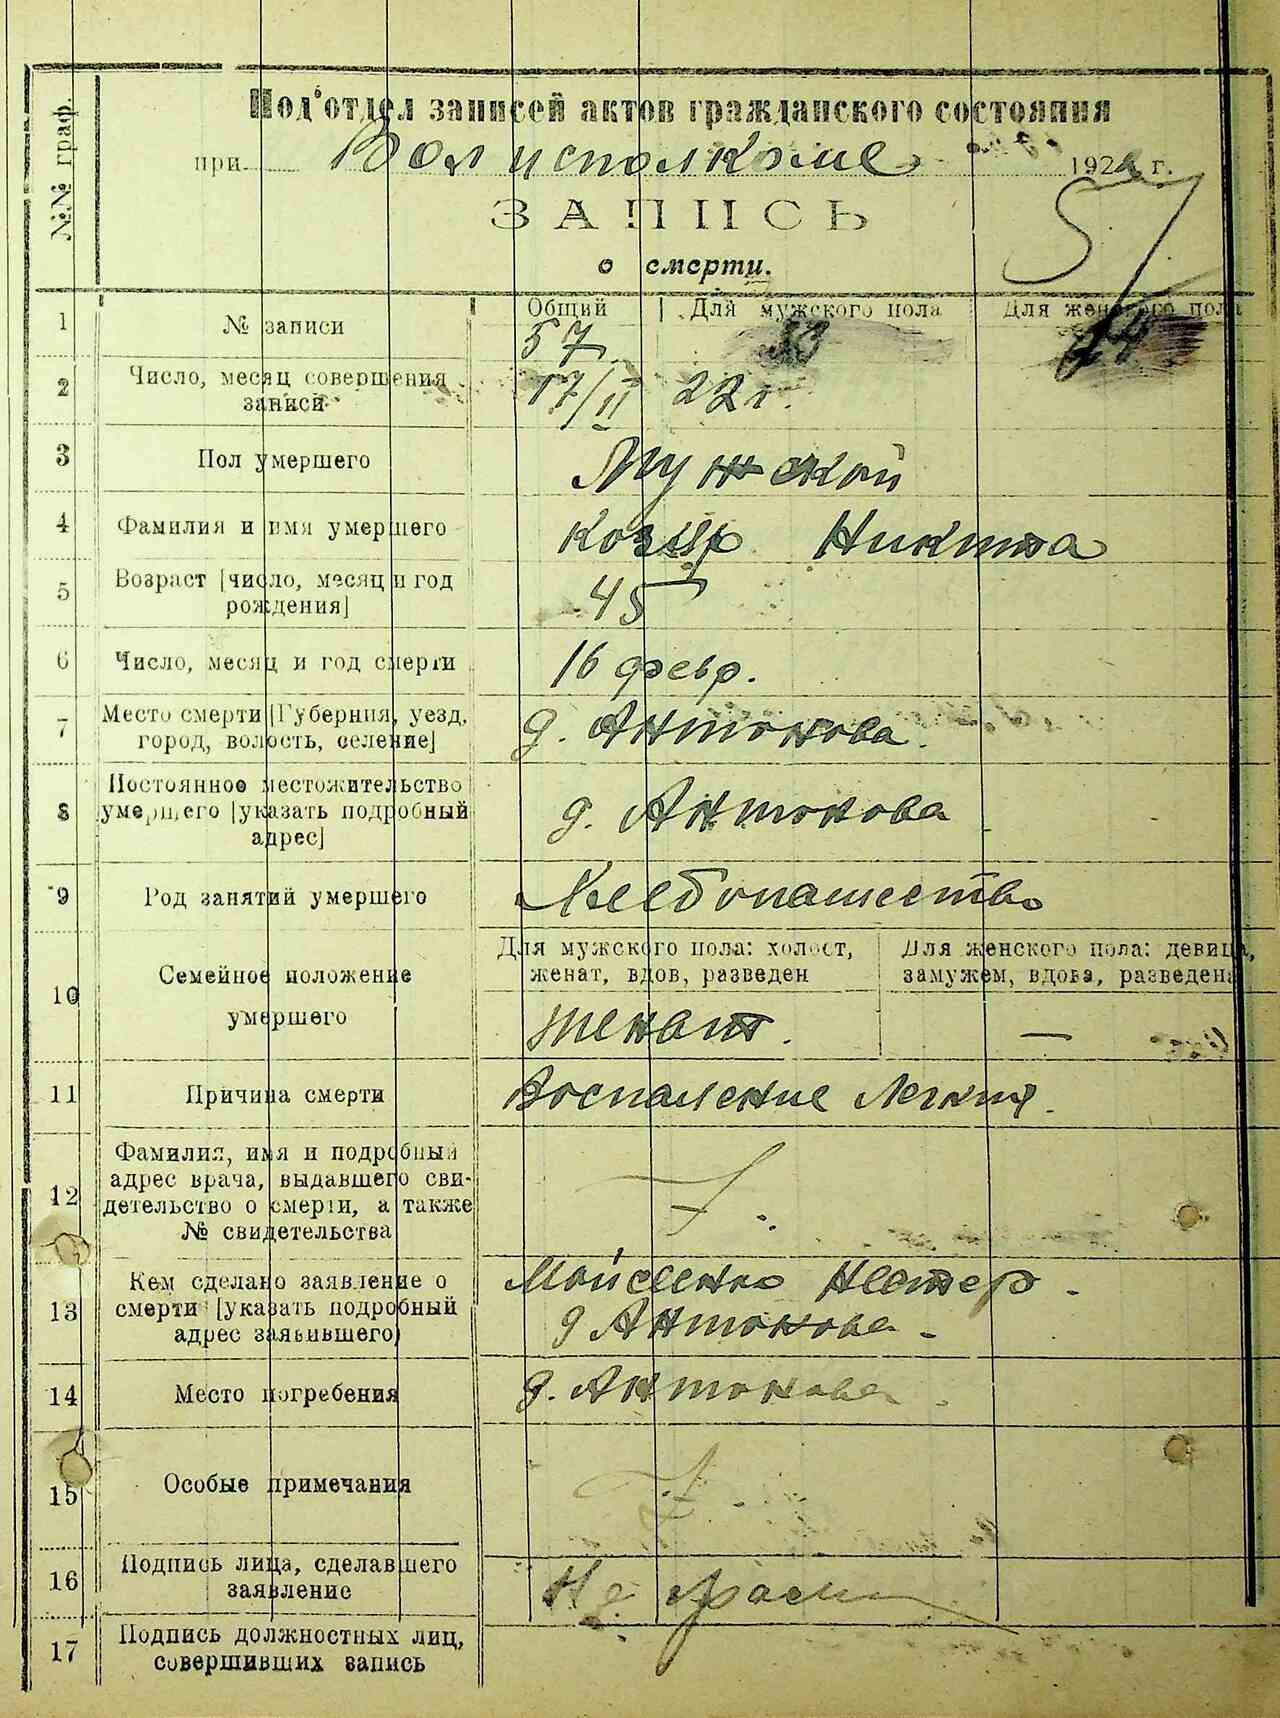 №№ граф.
Подотдел записей актов гражданского состояния
при Волисполкоме 1922 г.
ЗАПИСЬ
о смерти.
57
1 № записи Общий Для мужского пола Для женского пола
57 33 24
2 Число, месяц совершения записи 17/II 22 г.
3 Пол умершего Мужской
4 Фамилия и имя умершего Никита
5 Возраст [число, месяц и год рождения] 45
6 Число, месяц и год смерти 16 февр.
7 Место смерти [Губерния, уезд, город, волость, селение] д. Антонова.
8 Постоянное местожительство умершего [указать подробный адрес] д. Антонова
9 Род занятий умершего Хлебопашество
10 Семейное положение умершего Для мужского пола: холост, женат, вдов, разведен Для женского пола: девица, замужем, вдова, разведена
женат. —
11 Причина смерти Воспаление Легких.
12 Фамилия, имя и подробный адрес врача, выдавшего свидетельство о смерти, а также № свидетельства
13 Кем сделано заявление о смерти [указать подробный адрес заявившего) Мойсеенко Нестер.
д Антонова.
14 Место погребения д. Антонова.
15 Особые примечания
16 Подпись лица, сделавшего заявление
17 Подпись должностных лиц, совершивших запись